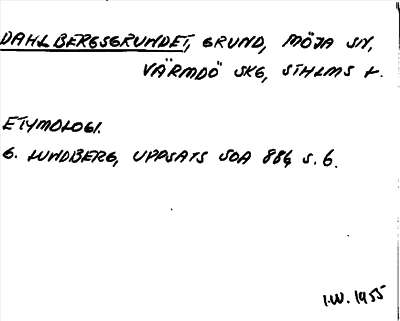 DAHLBERGSGRUNDET, GRUND, MÖJA SN,
VÄRMDÖ SKG, STHLMS L.
ETYMOLOGI.
G. LUNDBERG, UPPSATS SOA 884 S. 6.
I.W. 1955